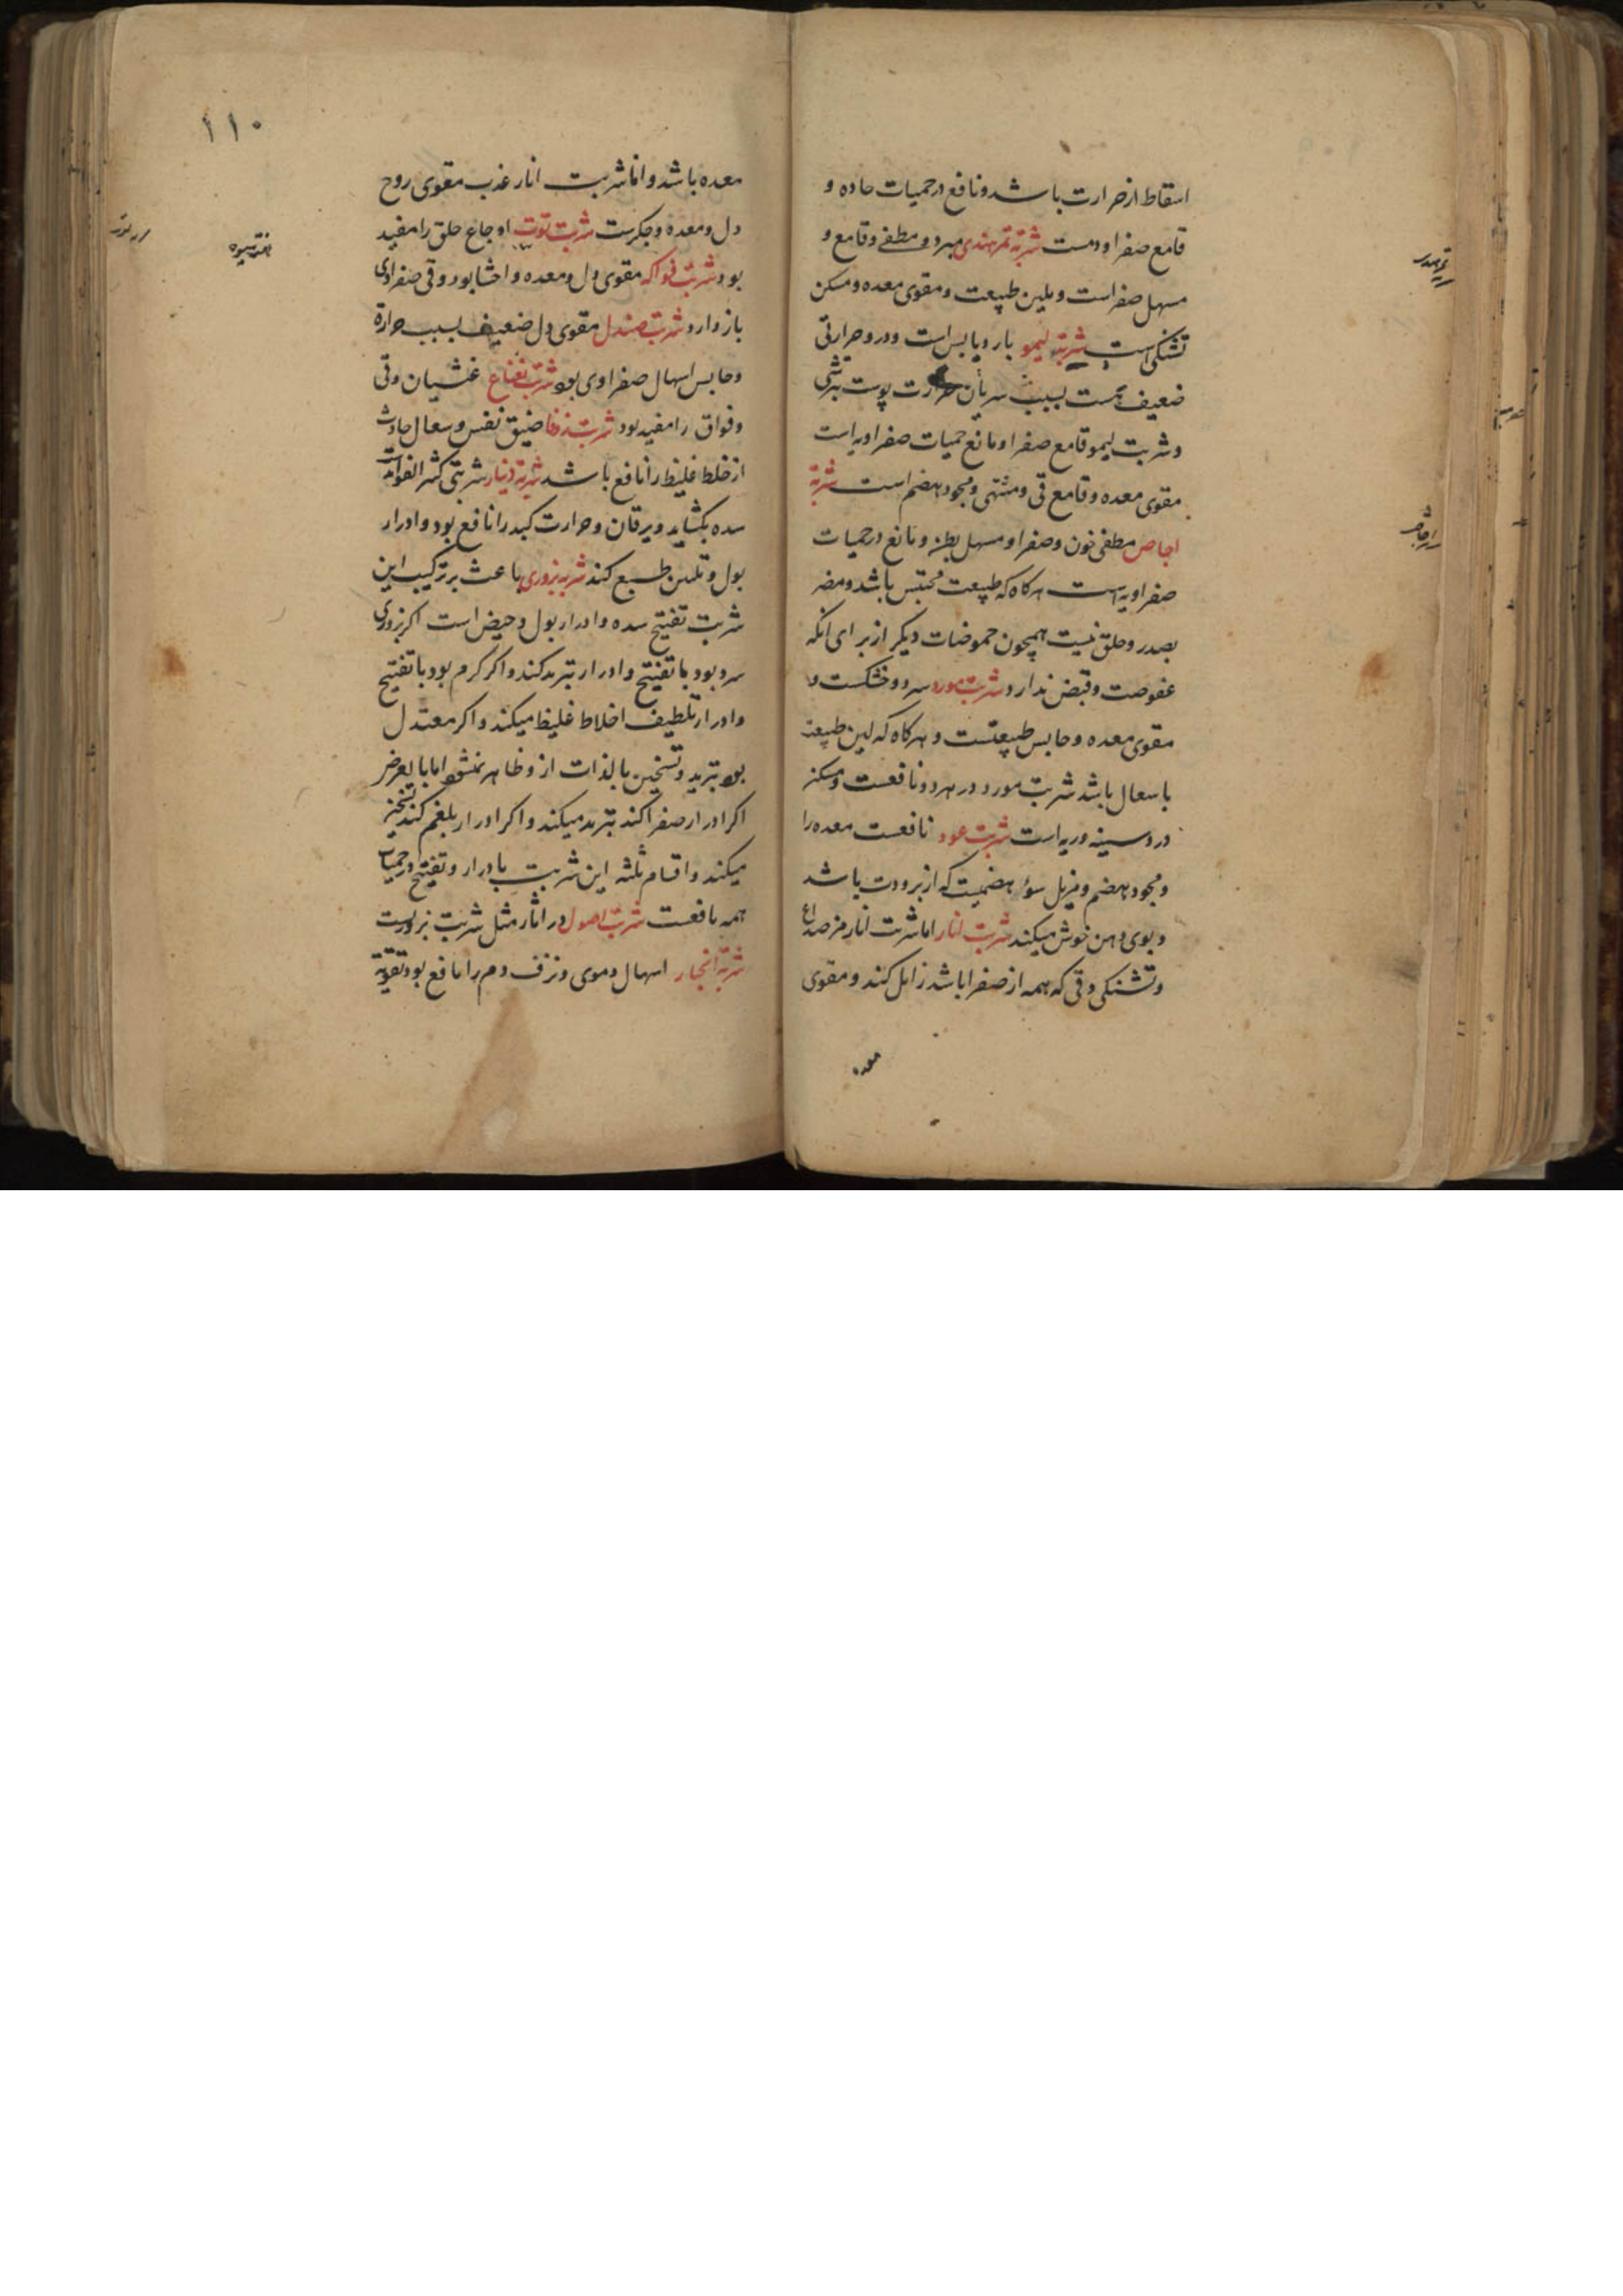 اسقاط از حرارت باشد و نافع در حمیات حاده و
قامع صفرا و دمست شربة تمرهندی مبرد و مطفے و قامع و
مسهل صفراست و ملین طبیعت و مقوی معده و مسکن
تشنکی است شربة لیمو بارد و یابس است و در و حرارتی
ضعیف هست بسبب سریان حرارت پوست بترشی
و شربت لیمو قامع صفرا و مانع حمیات صفراویه است
مقوی معده و قامع قی و مشتهی و مجود هضم است شربة
اجاص مطفی خون و صفرا و مسهل بطن و نافع در حمیات
صفراویه است هرکاه که طبیعت محتبس باشد و مضر
بصدر و حلق نیست همچون حموضات دیکر از برای انکه
عفوصت و قبض ندارد شربت مورد سرد و خشکست و
مقوی معده و حابس طبیعتست و هرکاه که لین طبیعت
با سعال باشد شربت مورد در هر دو نافعست و مسکن
درد سینه و ریه است شربت عود نافعست معده را
و مجود هضم و مزیل سوء هضمیست که از برودت باشد
و بوی دهن خوش میکند شربت انار اما شربت انار مز صداع
و تشنکی و قی که همه از صفرا باشد زایل کند و مقوی
معده
۱۱۰
معده باشد و اما شربت انار عذب مقوی روح
دل و معده و جکرست شربت توت اوجاع حلق را مفید
بود شربت فواکه مقوی دل و معده و احشا بود و قی صفراوی
باز دارد شربت صندل مقوی دل ضعیف بسبب حرارة
و حابس اسهال صفراوی بود شربت نعناع غثیان و قی
و فواق را مفید بود شربت زوفا ضیق نفس و سعال حادث
از خلط غلیظ را نافع باشد شربة دینار شربتی کثیر الفوائد است
سده بکشاید و یرقان و حرارت کبد را نافع بود و ادرار
بول و تلیین طبع کند شربة بزوری باعث بر ترکیب این
شربت تفتیح سده و ادرار بول و حیض است اکر بزوری
سرد بود با تفتیح و ادرار تبرید کند و اکر کرم بود با تفتیح
و ادرار تلطیف اخلاط غلیظ میکند و اکر معتدل
بود تبرید و تسخین بالذات از و ظاهر نمیشود اما بالعرض
اکر ادرار صفرا کند تبرید میکند و اکر ادرار بلغم کند تسخین
میکند و اقسام ثلثه این شربت بادرار و تفتیح در حمیات
همه نافعست شربت اصول در اثار مثل شربت بزورست
شربة انجبار اسهال دموی و نزف دم را نافع بود تقویة